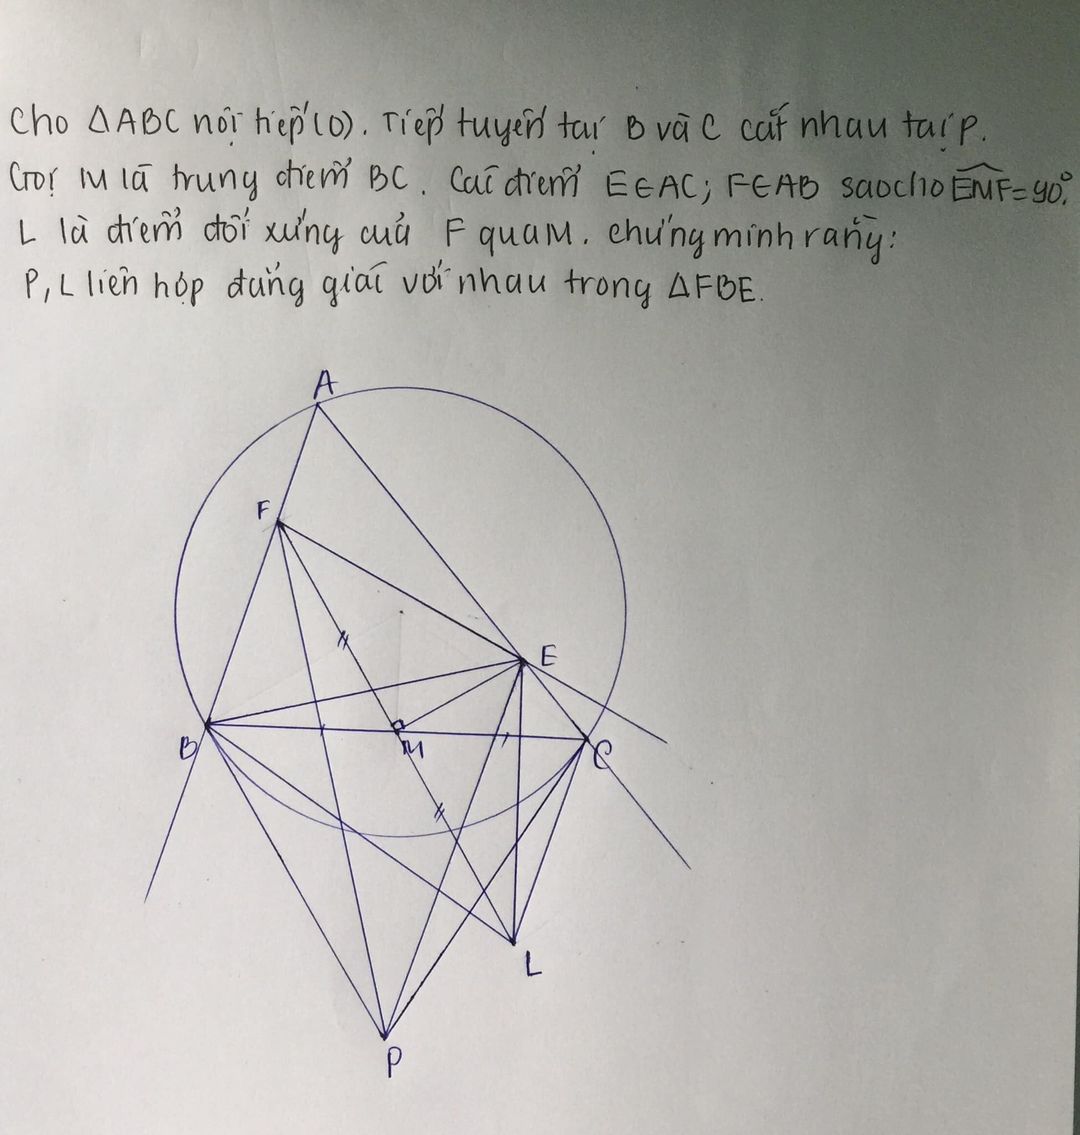 Cho ΔABC nội tiếp (O). Tiếp tuyến tại B và C cắt nhau tại P.
Gọi M là trung điểm BC. Các điểm E∈AC; F∈AB sao cho \widehat{EMF}=90°.
L là điểm đối xứng của F qua M. Chứng minh rằng:
P, L liên hợp đẳng giác với nhau trong ΔFBE.
A
F
E
B
M
C
L
P